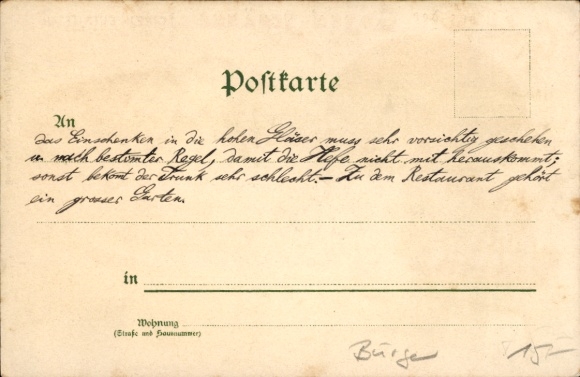 Postkarte
An
das Einschenken in die hohen Gläser muss sehr vorsichtig geschehen
u. nach bestomter Regel, damit die Hefe nicht mit herauskommt;
sonst bekomt der Trunk sehr schlecht. – Zu dem Restaurant gehört
ein grosser Garten.
in
Wohnung
(Straße und Hausnummer)
Bürge 15,-